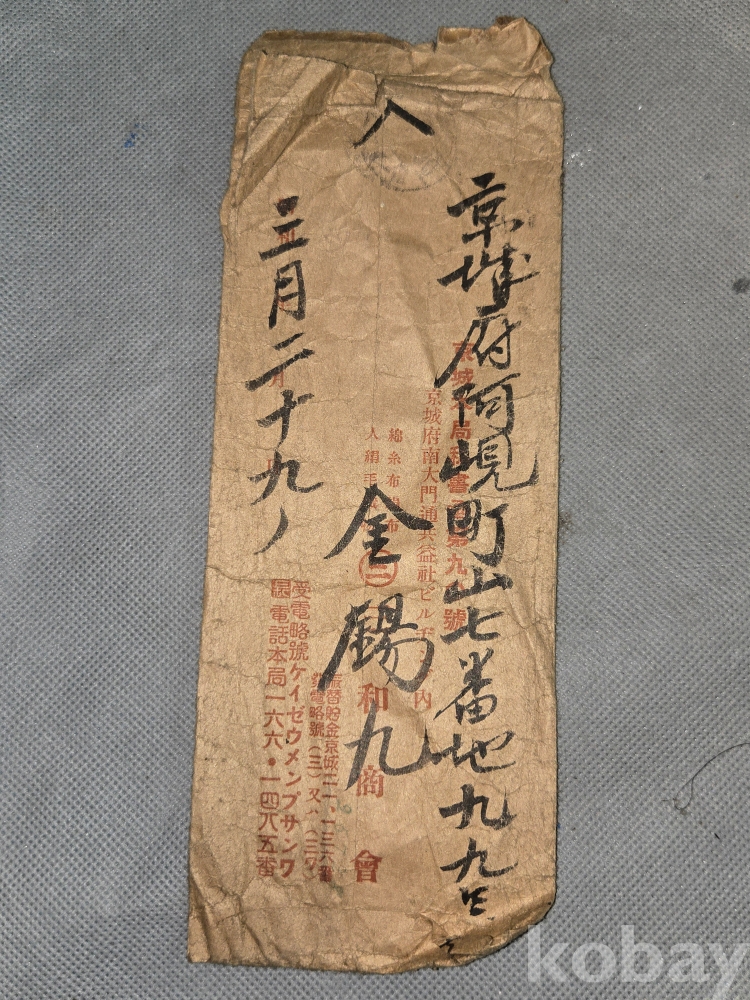 入
京城府阿峴町山七番地九九호
金錫九
三月二十九ノ
京城本局私書函第九 號
京城府南大門通共益社ビル 內
綿糸布
人絹毛
㊂ 和商會
振替貯金京城二一、一三六番
發電略號(三)又ハ(三ワ)
受電略號ケイゼウメンプサンワ
電話本局一六六・一四八五番
kobay